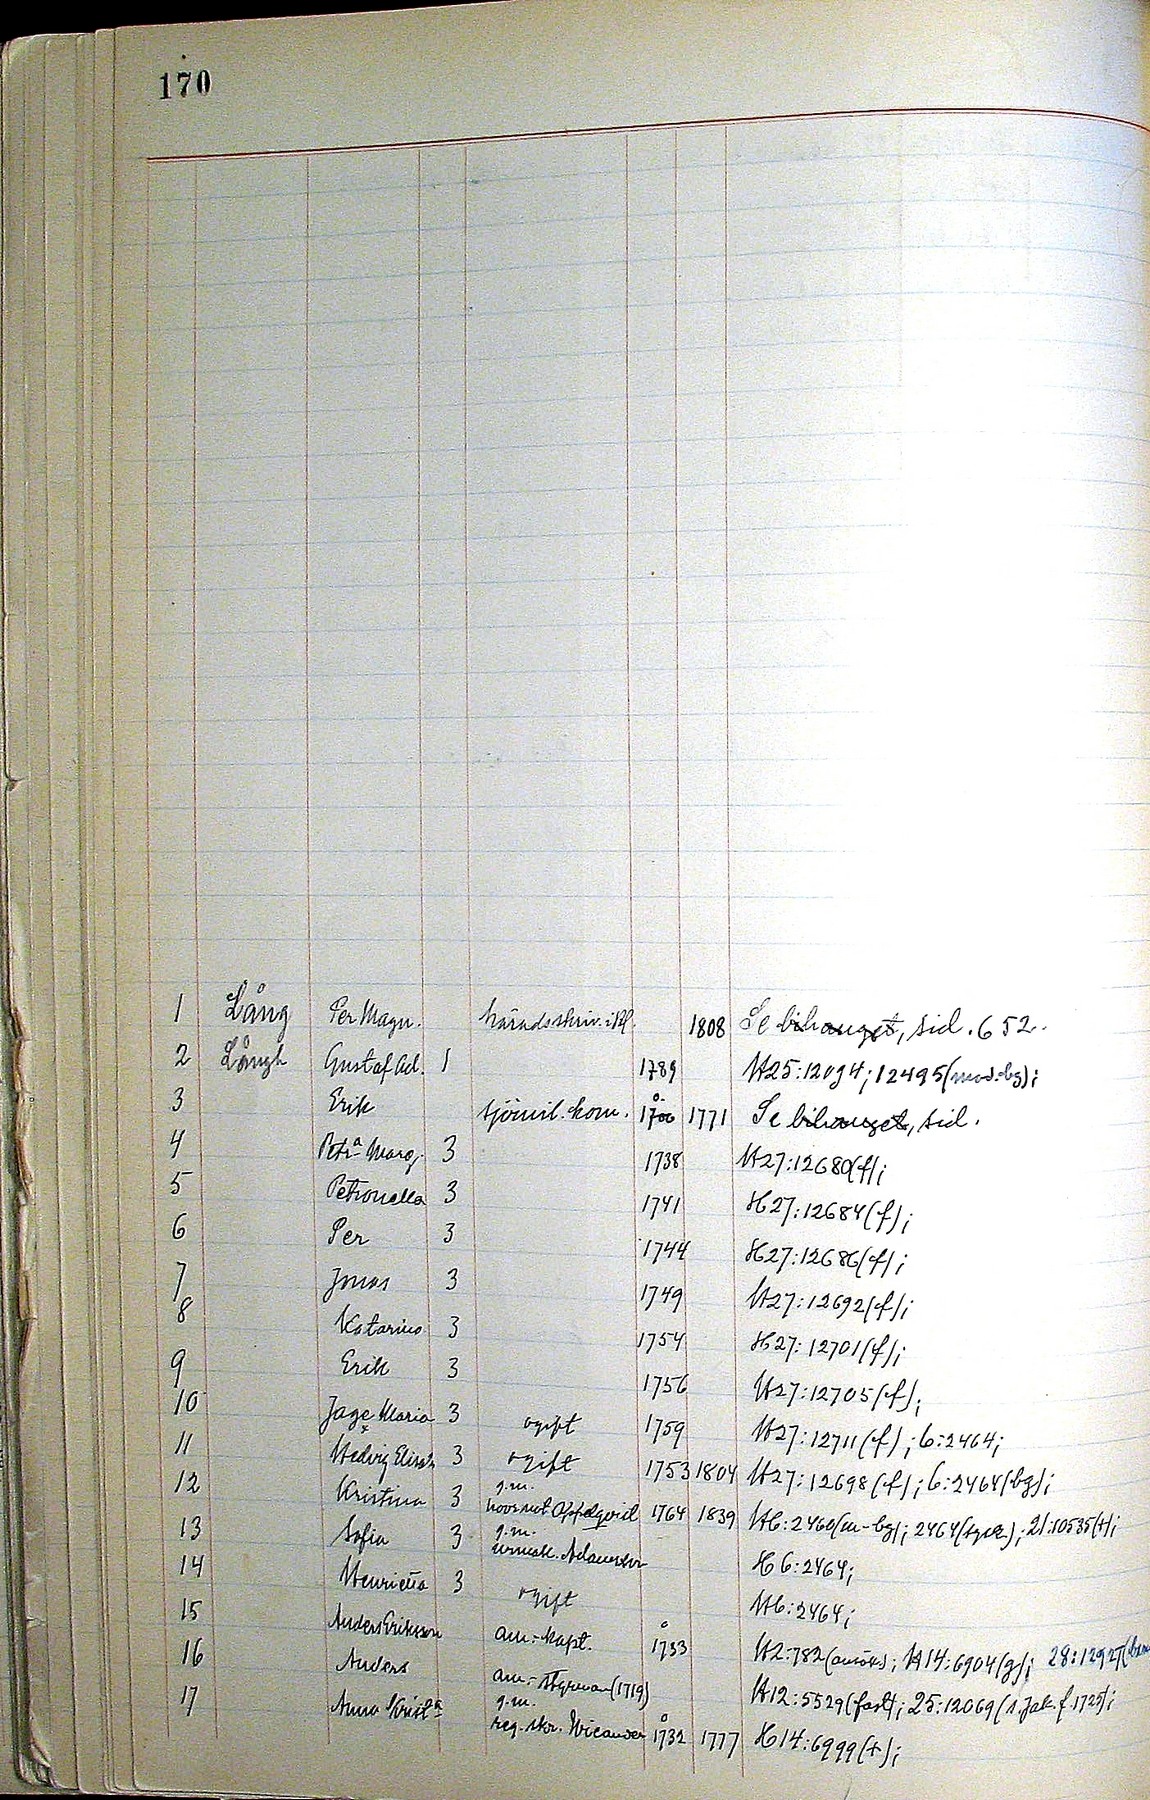 170
1 Lång Per Magn. häradsskriv. i Kl. 1808 Se bihanget, sid. 652.
2 Långh Gustaf Ad. 1 1789 H25:12094; 12495(mod.-bg);
3 Erik sjömil. kom. 1700 1771 Se bihanget, sid.
4 Petra Marg. 3 1738 H27:12680(f);
5 Petronella 3 1741 H27:12684(f);
6 Per 3 1744 H27:12686(f);
7 Jonas 3 1749 H27:12692(f);
8 Katarina 3 1754 H27:12701(f);
9 Erik 3 1756 H27:12705(f);
10 Maria 3 ogift 1759 H27:12711(f); 6:2464;
11 Hedvig Elisab. 3 ogift 1753 1804 H27:12698(f); 6:2464(bg);
12 Kristina 3 g.m. Appelqvist 1764 1839 H6:2460(m-bg); 2464( ); 21:10535(+);
13 Sofia 3 g.m. H6:2464;
14 Henrietta 3 ogift H6:2464;
15 Anders Eriksson am:-kapt. 1733 H2:782( ); H14:6904(g); 28:12927(
16 Anders am:-styrman(1719) H12:5529(fast); 25:12069(s. Jak. f. 1725);
17 Anna Krista g.m. reg.-skr. Wicander 1732 1777 H14:6999(+);